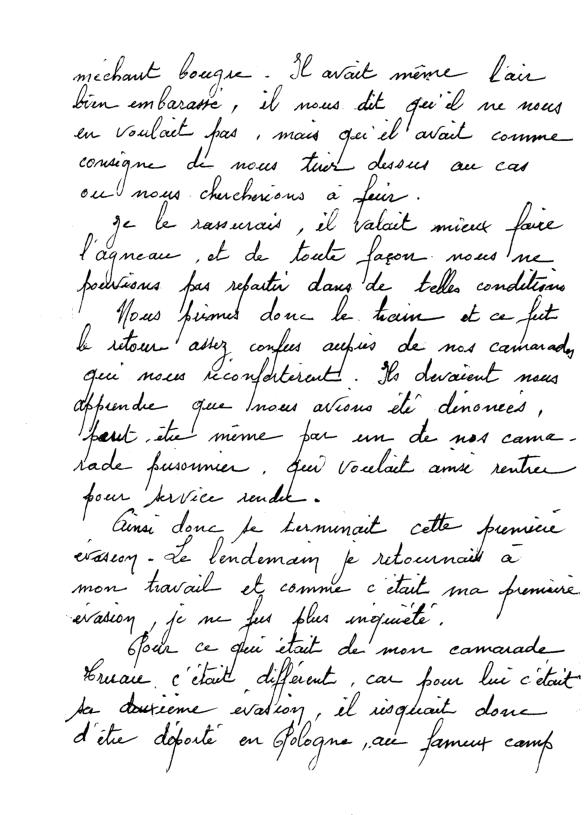 méchant bougre. Il avait même l'air
bien embarassé, il nous dit qu'il ne nous
en voulait pas, mais qu'il avait comme
consigne de nous tirer dessus au cas
ou nous chercherions à fuir.
Je le rassurais, il valait mieux faire
l'agneau, et de toute façon nous ne
pouvions pas repartir dans de telles conditions
Nous primes donc le train et ce fut
le retour assez confus auprès de nos camarades
qui nous réconfortèrent. Ils devaient nous
apprendre que nous avions été dénoncés,
peut être même par un de nos cama-
rade prisonnier, qui voulait ainsi rentrer
pour service rendu.
Ainsi donc se terminait cette première
évasion - Le lendemain je retournais à
mon travail et comme c'était ma première
évasion, je ne fus plus inquiété.
Pour ce qui était de mon camarade
c'était différent, car pour lui c'était
sa deuxième évasion, il risquait donc
d'être déporté en Pologne, au fameux camp